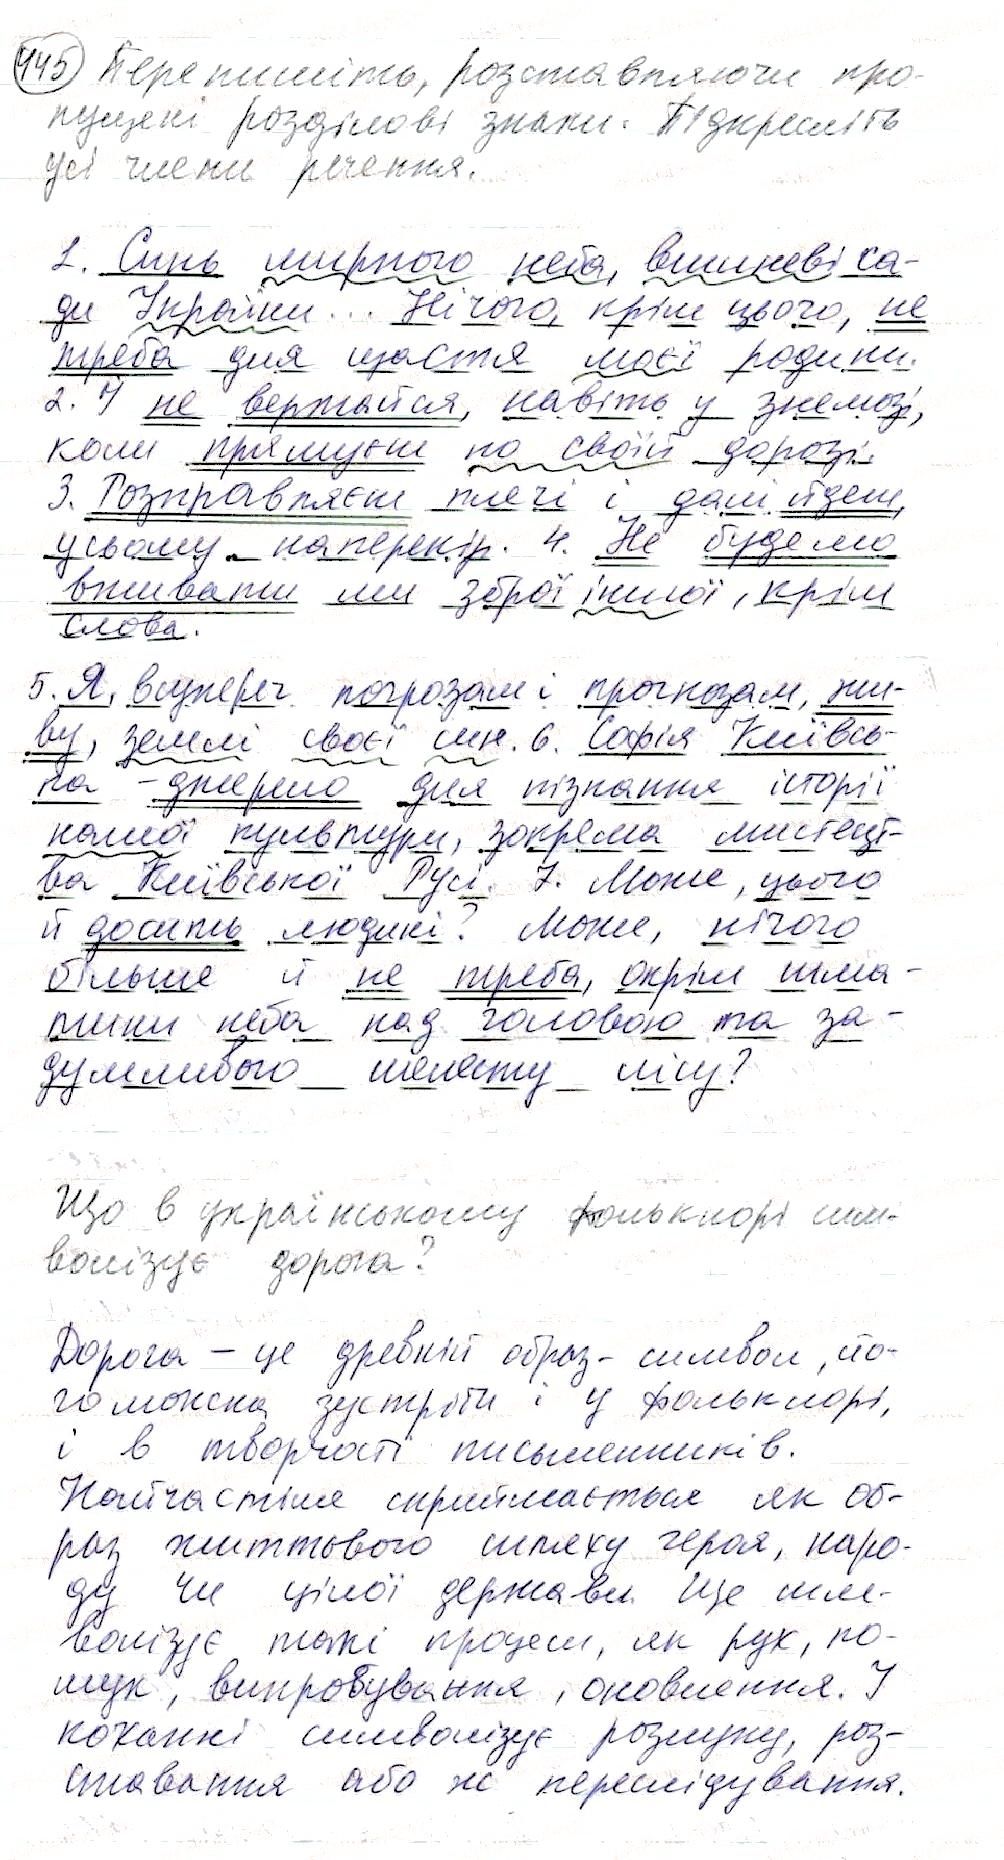 445 Перепишіть, розставляючи про-
пущені розділові знаки. Підкресліть
усі члени речення.
1. Синь мирного неба, вишневі са-
ди України... Нічого, крім цього, не
треба для щастя моєї родини.
2. І не вертайся, навіть у знемозі,
коли прямуєш по своїй дорозі.
3. Розправляєш плечі і далі йдеш,
усьому наперекір. 4. Не будемо
вживати ми зброї іншої, крім
слова.
5. Я, всупереч погрозам і прогнозам, жи-
ву, землі своєї син. 6. Софія Київсь-
ка - джерело для пізнання історії
нашої культури, зокрема мистец-
ва Київської Русі. 7. Може, цього
й досить людині? Може, нічого
більше й не треба, окрім шма-
тини неба над головою та за-
думливого шелесту лісу?
Що в українському фольклорі сим-
волізує дорога?
Дорога – це древній образ-символ, йо-
го можна зустріти і у фольклорі,
і в творчості письменників.
Найчастіше сприймається як об-
раз життєвого шляху героя, наро-
ду чи цілої держави. Ще сим-
волізує такі процеси, як рух, по-
шук, випробування, оновлення. І
коханні символізує розлуку, роз-
ставання або ж переслідування.